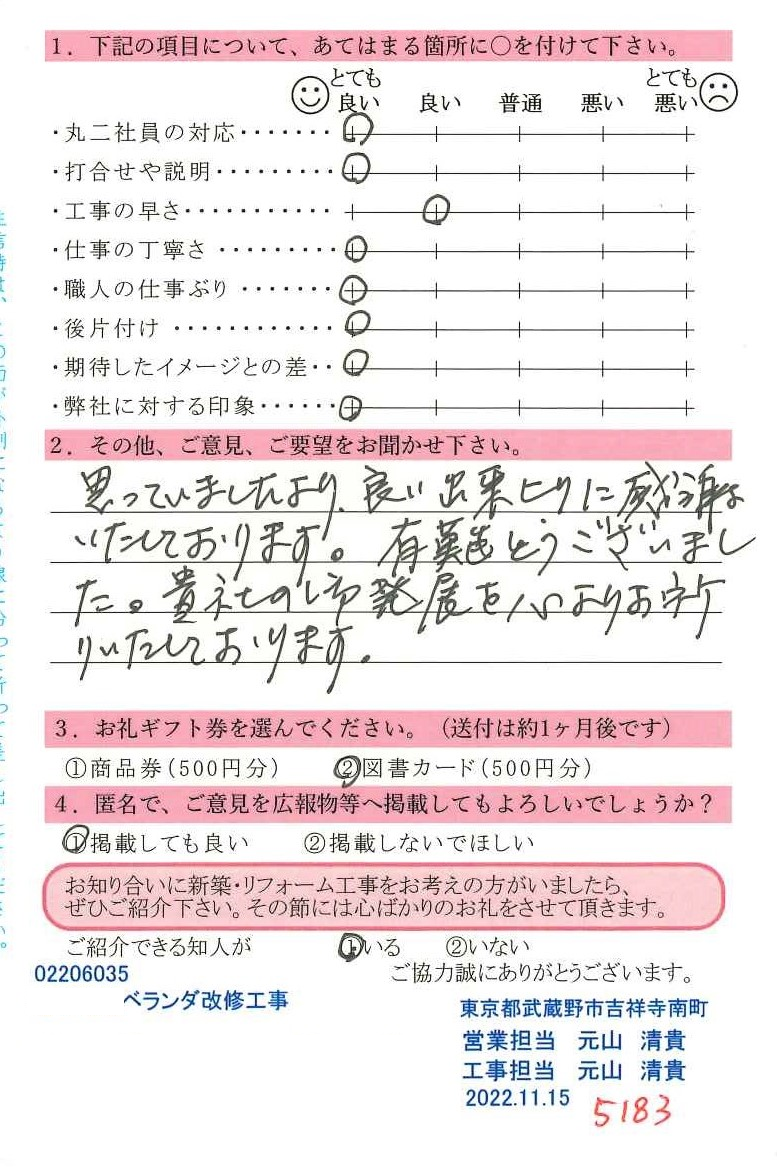 1. 下記の項目について、あてはまる箇所に○を付けて下さい。
とても良い 良い 普通 悪い とても悪い
・丸二社員の対応・・・・・・・
・打合せや説明・・・・・・・・・
・工事の早さ・・・・・・・・・・・
・仕事の丁寧さ・・・・・・・・・
・職人の仕事ぶり・・・・・・・
・後片付け・・・・・・・・・・・・
・期待したイメージとの差・・
・弊社に対する印象・・・・・・
2. その他、ご意見、ご要望をお聞かせ下さい。
思っていましたより、良い出来上りに感謝
いたしております。有難とうございまし
た。貴社の御発展を心よりお祈
りいたしております。
3. お礼ギフト券を選んでください。(送付は約1ヶ月後です)
①商品券(500円分) ②図書カード(500円分)
4. 匿名で、ご意見を広報物等へ掲載してもよろしいでしょうか?
①掲載しても良い ②掲載しないでほしい
お知り合いに新築・リフォーム工事をお考えの方がいましたら、
ぜひご紹介下さい。その節には心ばかりのお礼をさせて頂きます。
ご紹介できる知人が ①いる ②いない
02206035 ご協力誠にありがとうございます。
ベランダ改修工事
東京都武蔵野市吉祥寺南町
営業担当 元山 清貴
工事担当 元山 清貴
2022.11.15
5183